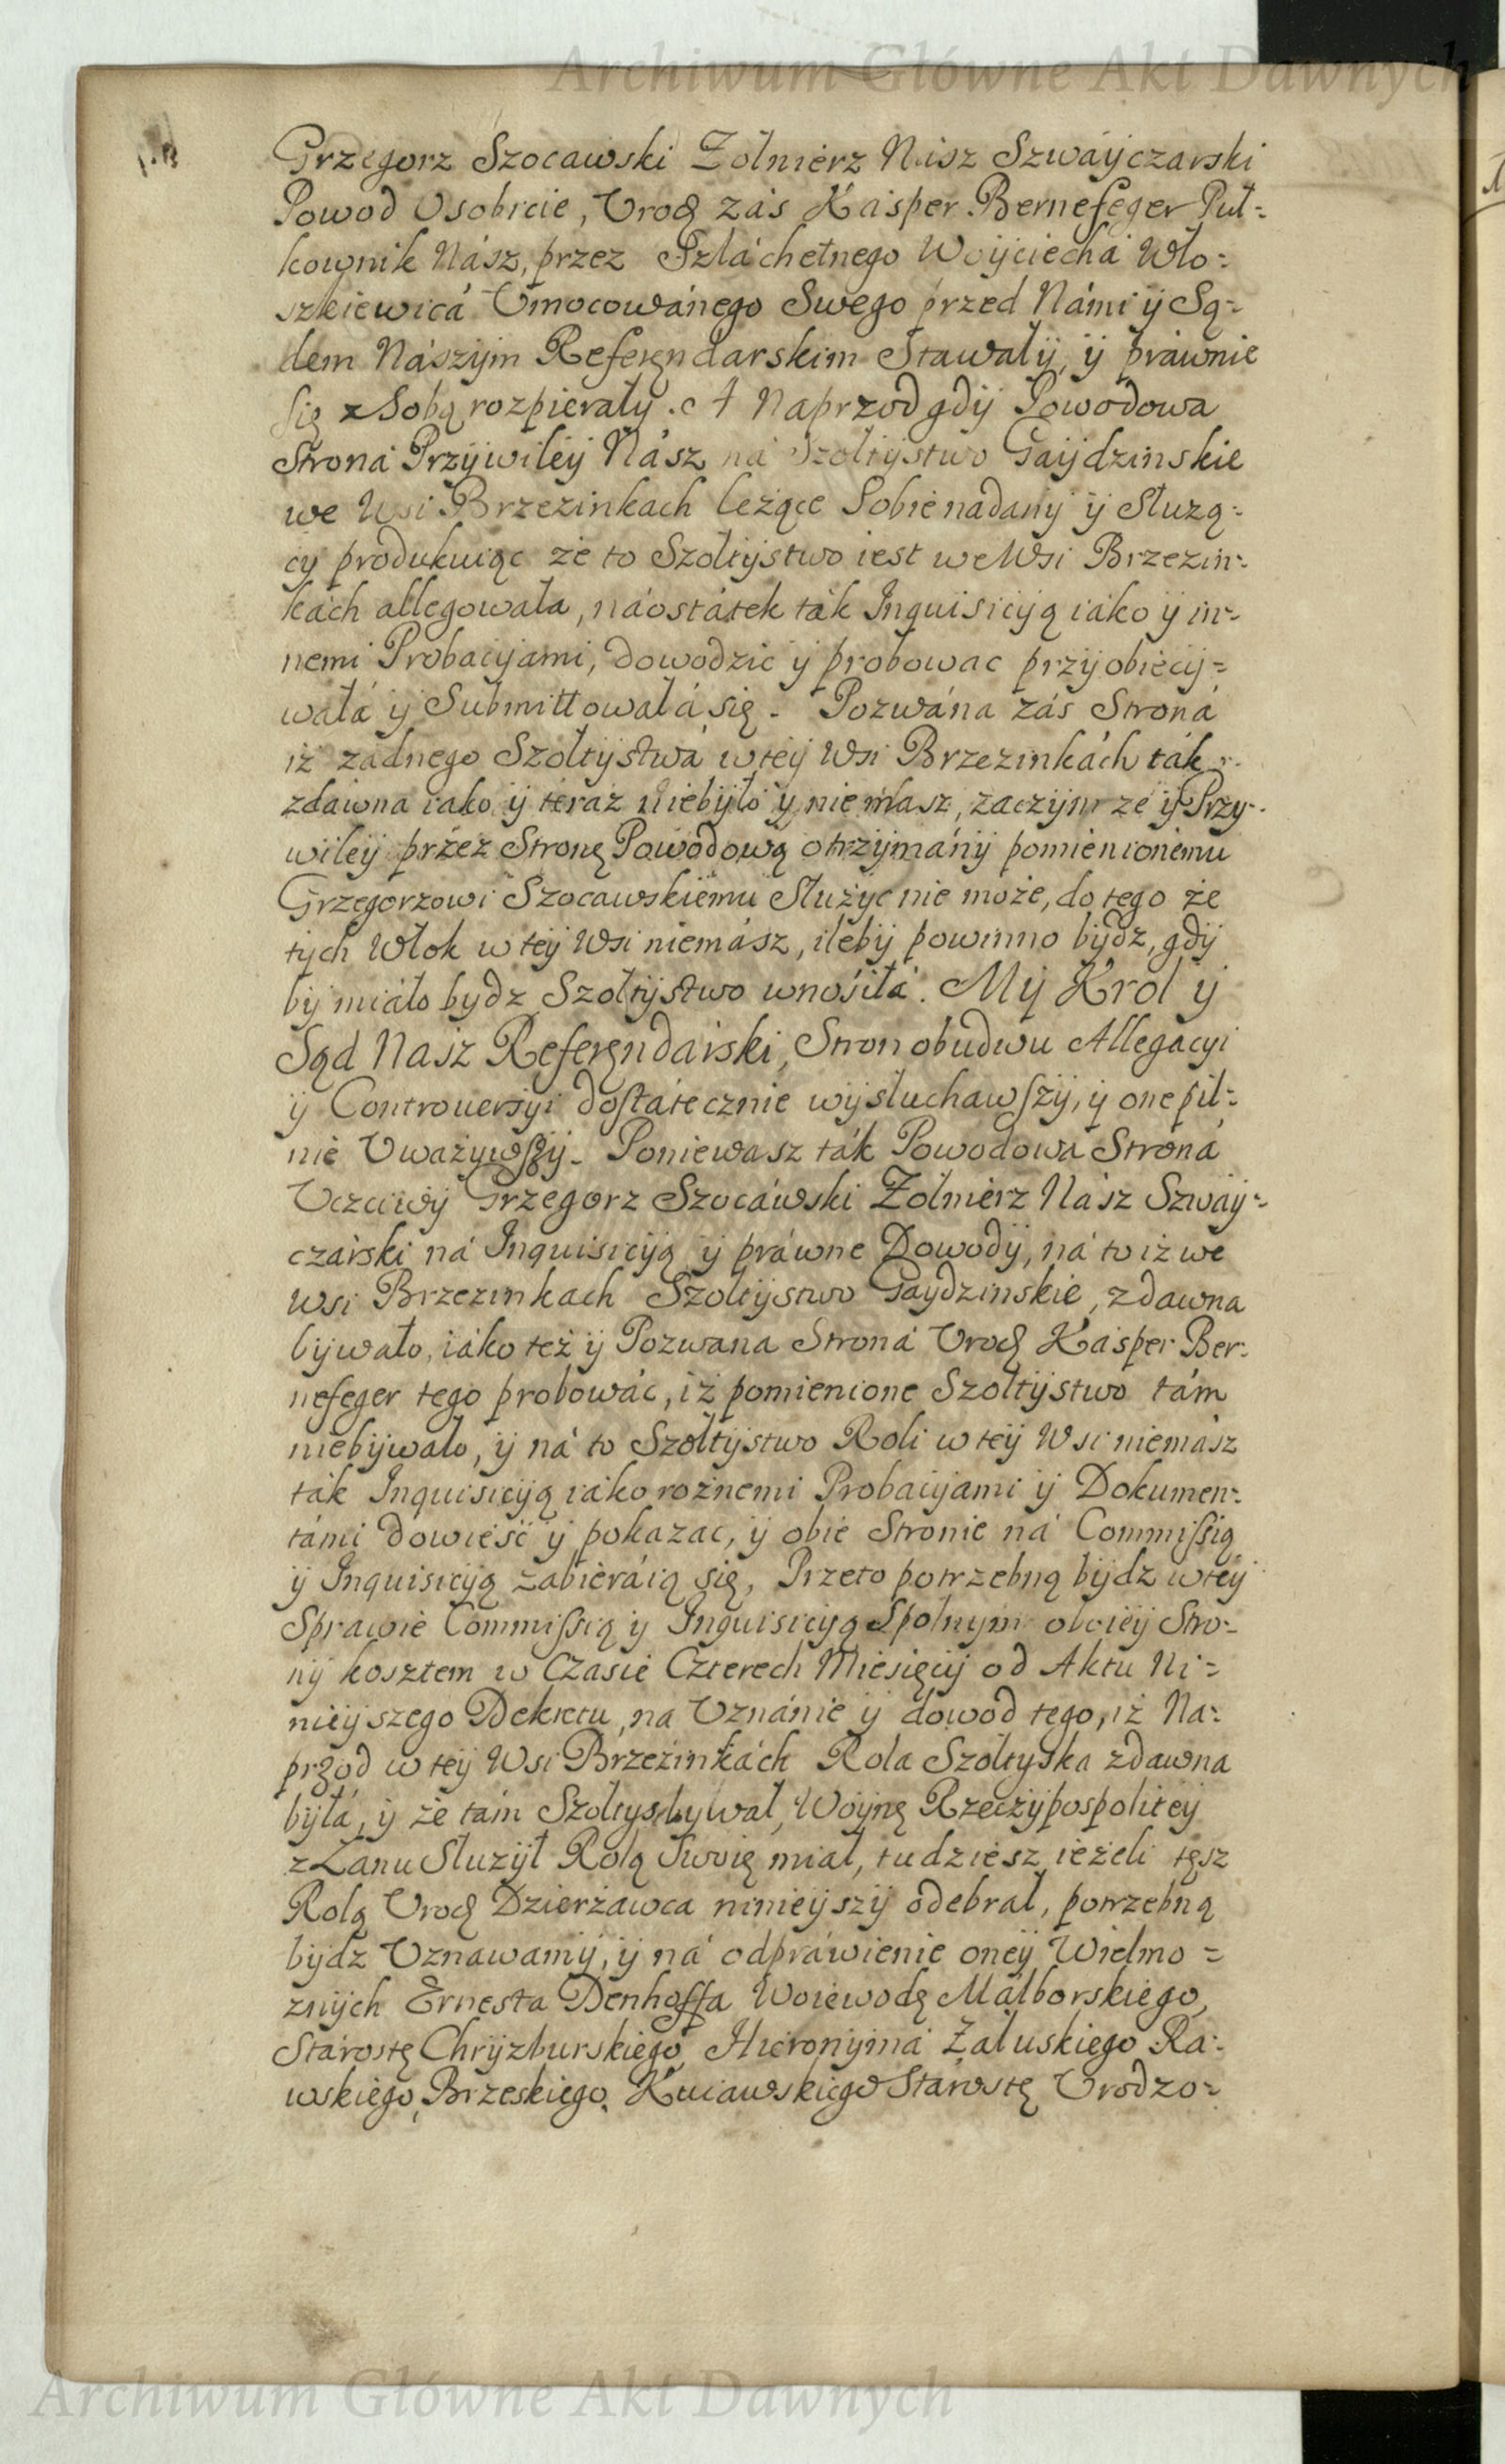 Archiwum Główne Akt Dawnych
Grzegorz Szocawski Zołnierz Nasz Szwayczarski
Powod Osobiscie, Urodź zás Káspер Bernefeger Puł=
kownik Nász, przez Szláchetnego Woyciechá Wło=
szkiewicá Umocowánego Swego przed Námi ÿ Są=
dem Nászÿm Referęndarskim Stawałÿ, ÿ práwnie
się z Sobą rozpierały. A Naprzod gdÿ Powodowa
Strona Przÿwileÿ Nász ná Szołtÿstwo Gaÿdzinskie
we Wsi Brzezinkach leżące Sobie nadanÿ ÿ Służą=
cy produkuiąc że to Szołtÿstwo iest we Wsi Brzezin=
kách allegowała, náostátek ták Inquisicÿą iáko ÿ in=
nemi Probacÿami, dowodzic ÿ probowac przÿobiecÿ=
wałá ÿ Submittowałá się. Pozwána zás Stroná
iż zadnego Szołtÿstwá w teÿ Wsi Brzezinkách ták
zdawna iako ÿ teraz niebÿło ÿ niemasz, zaczÿm że ÿ Przy=
wileÿ przez Stronę Powodową otrzÿmánÿ pomienionemu
Grzegorzowi Szocawskiemu Służyc nie może, do tego że
tÿch Włok w teÿ Wsi niemász, ilebÿ powinno bÿdz, gdÿ
bÿ miáło bydz Szołtÿstwo wnosiłá. Mÿ Krol ÿ
Sąd Nasz Referęndarski, Stron obudwu Allegacyi
ÿ Controuersyi dostátecznie wÿsłuchawszÿ, ÿ one pil=
nie Uważywszÿ. Poniewasz ták Powodowá Stroná
Uczciwÿ Grzegorz Szocáwski Zołnierz Nász Szwáÿ=
czárski ná Inquisicÿą ÿ práwne Dowodÿ, ná to iż we
Wsi Brzezinkach Szołtÿstwo Gaydzinskie, zdawna
bÿwało, iáko też ÿ Pozwana Stroná Urodź Kásper Ber=
nefeger tego probowác, iż pomienione Szołtÿstwo tám
niebÿwało, ÿ ná to Szołtÿstwo Roli w teÿ Wsi niemász
ták Inquisicÿą iáko rożnemi Probacÿami ÿ Dokumen=
támi dowieść ÿ pokazac, ÿ obie Stronie ná Commissią
ÿ Inquisicÿą zabieráią się, Przeto potrzebną bÿdz w teÿ
Sprawie Commissią ÿ Inquisicÿą Spolnym oboieÿ Stro=
nÿ kosztem w Czasie Czterech Miesięcÿ od Aktu Ni=
nieÿszego Dekretu, na Uznánie ÿ dowod tego, iż Na=
przod w teÿ Wsi Brzezinkách Rola Szołtyska zdawna
byłá, ÿ że tam Szołtys bywał, Woÿnę Rzeczÿpospoliteÿ
z Łanu Służÿł Rolą Swoię miał, tudziesz ieżeli tęsz
Rolą Urodź Dzierżawca ninieÿszÿ odebrał, potrzebną
bÿdz Uznawamÿ, ÿ ná odpráwienie oneÿ Wielmo=
znÿch Ernesta Denhoffa Woiewodę Málborskiego,
Stárostę Chrÿzburskiego, Hieronÿmá Załuskiego Ra=
wskiego, Brzeskiego, Kuiawskiego Starostę Urodzo=
Archiwum Główne Akt Dawnych